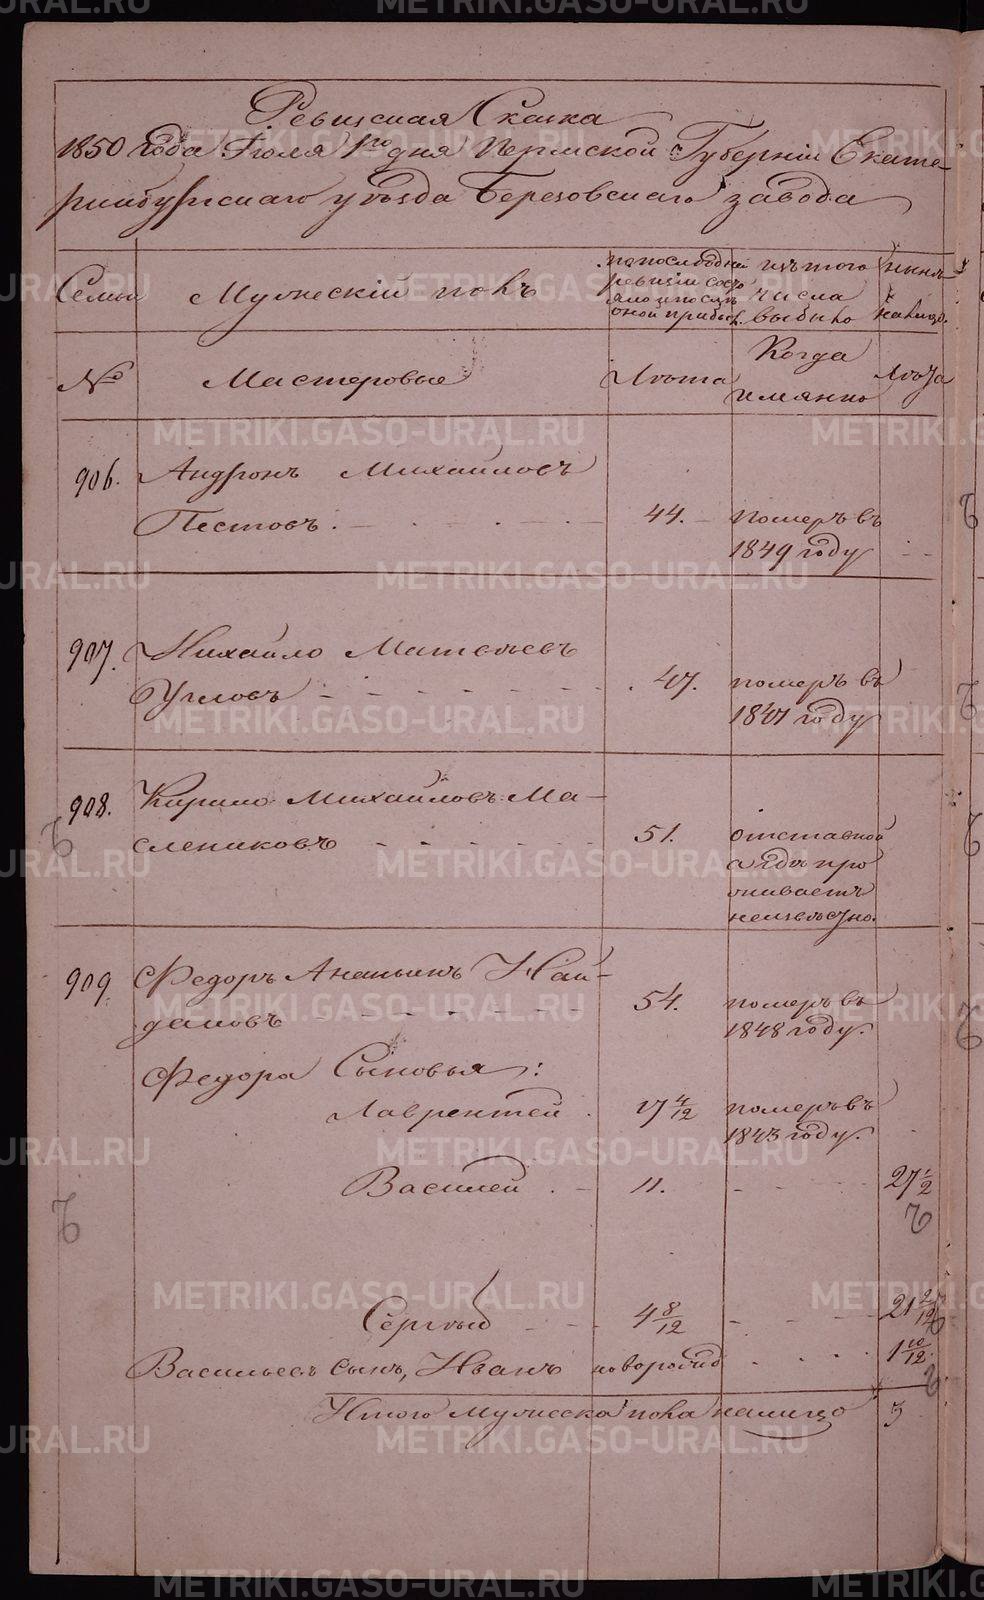 Ревизская Сказка
1850 года Іюля 1го дня Пермской Губерніи Екате-
ринбургскаго уѣзда Березовскаго завода
Семьи
Мужескій полъ
по послѣдней
ревизіи сос
оной прибы.
изъ того
числа
выбыло
нынѣ
налицо.
№
Мастеровые
Лѣта
Когда
имянно
Лѣта
906.
Андронъ Михайловъ
Пестовъ.
44.
померъ въ
1849 году
907.
Михайло Матвѣевъ
Угловъ
47.
померъ въ
1847 году
908.
Кирило Михайловъ Ма-
слениковъ
51.
отставной
а гдѣ про
живаетъ
неизвѣстно.
909.
Федоръ Ананьинъ Най-
дановъ
54.
померъ въ
1848 году.
Федора Сыновья:
Лаврентей
17 4/12
померъ въ
1843 году.
Василей
11.
27 1/2
Сергѣй
4 8/12
21 2/12
Васильевъ сынъ, Иванъ
новорожд
1 10/12
Итого мужеска пола налицо
3
METRIKI.GASO-URAL.RU